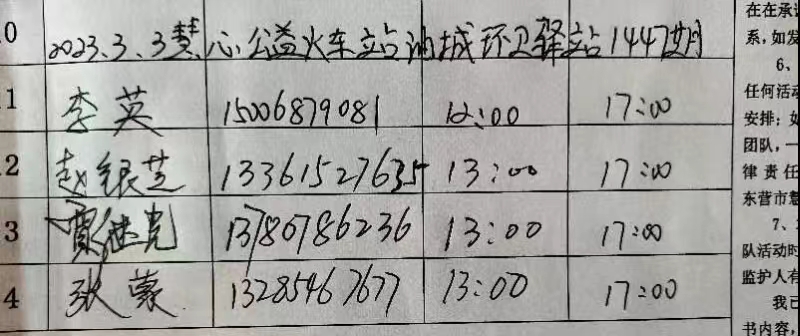 0 2023.3.3慧心公益火车站油城环卫驿站1447期
1 李英 15006879081 12:00 17:00
2 赵银芝 13361527635 13:00 17:00
3 贾继亮 13780786236 13:00 17:00
4 张蒙 13285467677 13:00 17:00
在在承
系,如发
6、
任何活动
安排;如
团队,一
律责任
东营市慧
7、
队活动时
监护人有
我已
书内容,